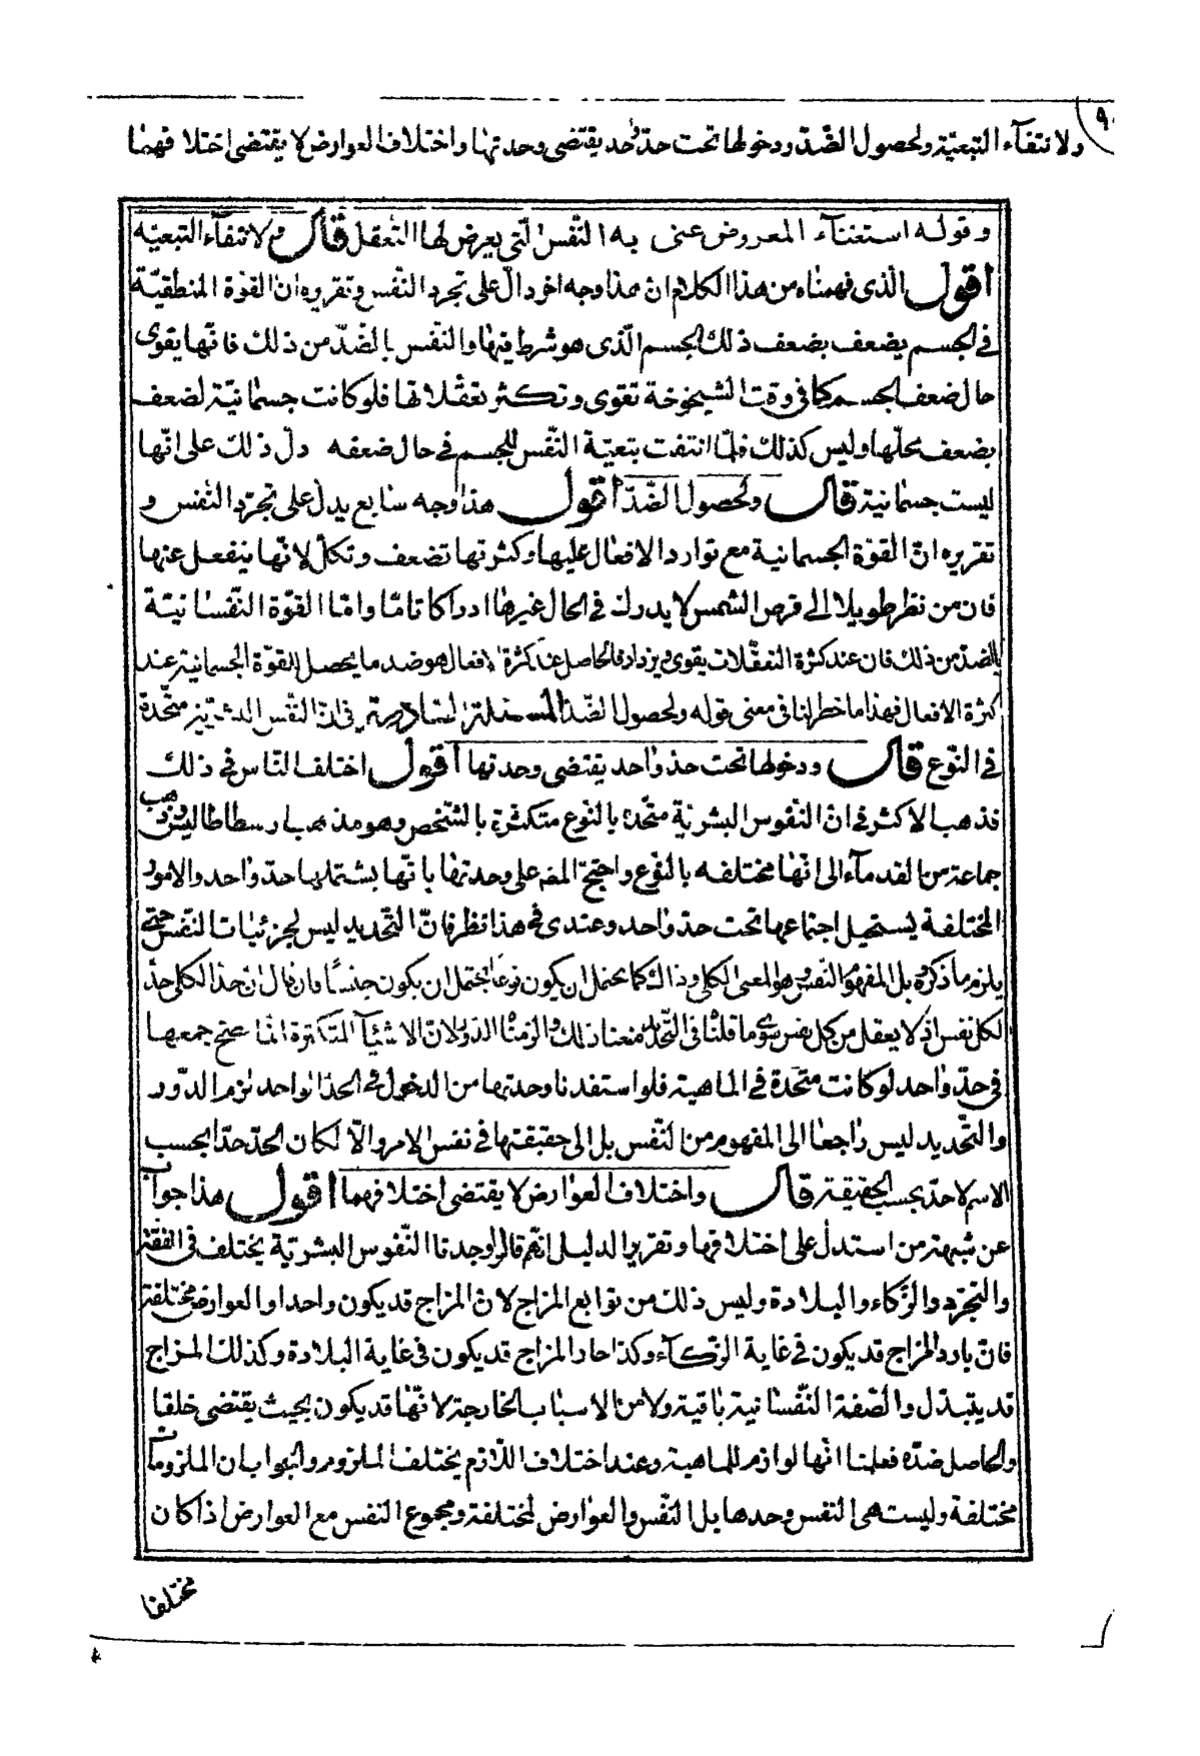 ٩٠
ولانتفآء التبعيّة ولحصول الضّد ودخولها تحت حدّ واحد يقتضى وحدتها واختلاف العوارض لا يقتضى اختلافهما
وقوله استغنآء المعروض عنى به النّفس الّتى يعرض لها التعقل قال م لانتفآء التبعيّه
اقول الّذى فهمناه من هذا الكلام ان هذا وجه اخر دالّ على تجرد النّفس وتقريره ان القوّة المنطقيّة
فى الجسم يضعف بضعف ذلك الجسم الّذى هو شرط فيها والنّفس بالضّد من ذلك فانّها يقوى
حال ضعف الجسم كما فى وقت الشيخوخة تقوى وتكثر تعقّلاتها فلو كانت جسمانيّة لضعف
بضعف محلّها وليس كذلك فلمّا انتفت تبعيّة النّفس للجسم فى حال ضعفه دلّ ذلك على انّها
ليست جسمانية قال ولحصول الضّد اقول هذا وجه سابع يدل على تجرّد النّفس و
تقريره انّ القوّة الجسمانية مع توارد الافعال عليها وكثرتها تضعف وتكلّ لانّها ينفعل عنها
فان من نظر طويلا الى قرص الشمس لا يدرك فى الحال غيرها ادراكا تامّا وامّا القوّة النّفسانيّة
بالضد من ذلك فان عند كثرة التعقّلات يقوى ويزداد فالحاصل عند كثرة الافعال هو ضد ما يحصل القوّة الجسمانية عند
كثرة الافعال فهذا ما خطر لنا فى معنى قوله ولحصول الضّد المسئلة السّادسة فى انّ النّفس البشريّة متّحدة
فى النّوع قال ودخولها تحت حدّ واحد يقتضى وحدتها اقول اختلف النّاس فى ذلك
فذهب الاكثر فى انّ النّفوس البشريّة متّحدة بالنّوع متكثّرة بالشّخص وهو مذهب ارسطاطاليس وذهب
جماعة من القدمآء الى انّها مختلفه بالنّوع واحتجّ المصه على وحدتها بانّها يشتملها حدّ واحد والامور
المختلفة يستحيل اجتماعها تحت حدّ واحد وعندى فى هذا نظر فانّ التّحديد ليس لجزئيات النّفس حتى
يلزم ما ذكره بل المفهوم النّفس وهو المعنى الكلى وذلك كما يحتمل ان يكون نوعا يحتمل ان يكون جنسًا فان قال ان حد الكلى حدّ
لكل نفس اذ لا يعقل من كل نفس سوى ما قلنا فى التّحديد منعنا ذلك والزمنا الدّور لان الاشيآء المتكثرة انّما صحّ جمعها
فى حدّ واحد لو كانت متّحدة فى الماهية فلو استفدنا وحدتها من الدخول فى الحدّ الواحد لزم الدّور
والتّحديد ليس راجعا الى المفهوم من النّفس بل الى حقيقتها فى نفس الامر والّا لكان الحدّ حدّا بحسب
الاسم لا حدّ بحسب الحقيقة قال واختلاف العوارض لا يقتضى اختلافهما اقول هذا جواب
عن شبهة من استدلّ على اختلافها وتقرير الدليل انّهم قالوا وجدنا النّفوس البشريّة يختلف فى الفقة
والتجرّد والزّكاء والبلادة وليس ذلك من توابع المزاج لان المزاج قد يكون واحدا والعوارض مختلفة
فانّ بارد المزاج قد يكون فى غاية الزّكآء وكذا حار المزاج قد يكون فى غاية البلادة وكذلك المزاج
قد يتبدّل والصّفة النّفسانية باقية ولا من الاسباب الخارجة لانّها قد يكون بحيث يقتضى خلقا
والحاصل ضدّه فعلمنا انّها لوازم للماهية وعند اختلاف اللّازم يختلف الملزوم والجواب ان الملزومات
مختلفة وليست هى النّفس وحدها بل النّفس والعوارض المختلفة ومجموع النّفس مع العوارض اذا كان
مختلفا